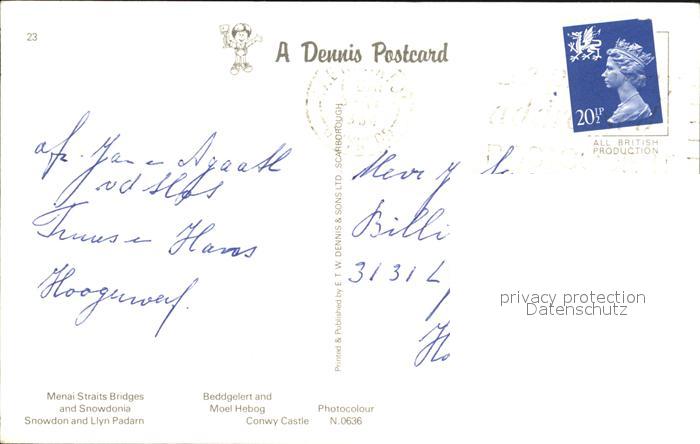 23
A Dennis Postcard
20½P
ALL BRITISH
PRODUCTION
afz. Jan en Agaath
vd Slos
Truus en Hans
Hoogerwerf.
Mevr
Billi
3131 L
Ho
Printed & Published by E. T. W. DENNIS & SONS LTD., SCARBOROUGH
privacy protection
Datenschutz
Menai Straits Bridges
and Snowdonia
Snowdon and Llyn Padarn
Beddgelert and
Moel Hebog
Conwy Castle
Photocolour
N.0636